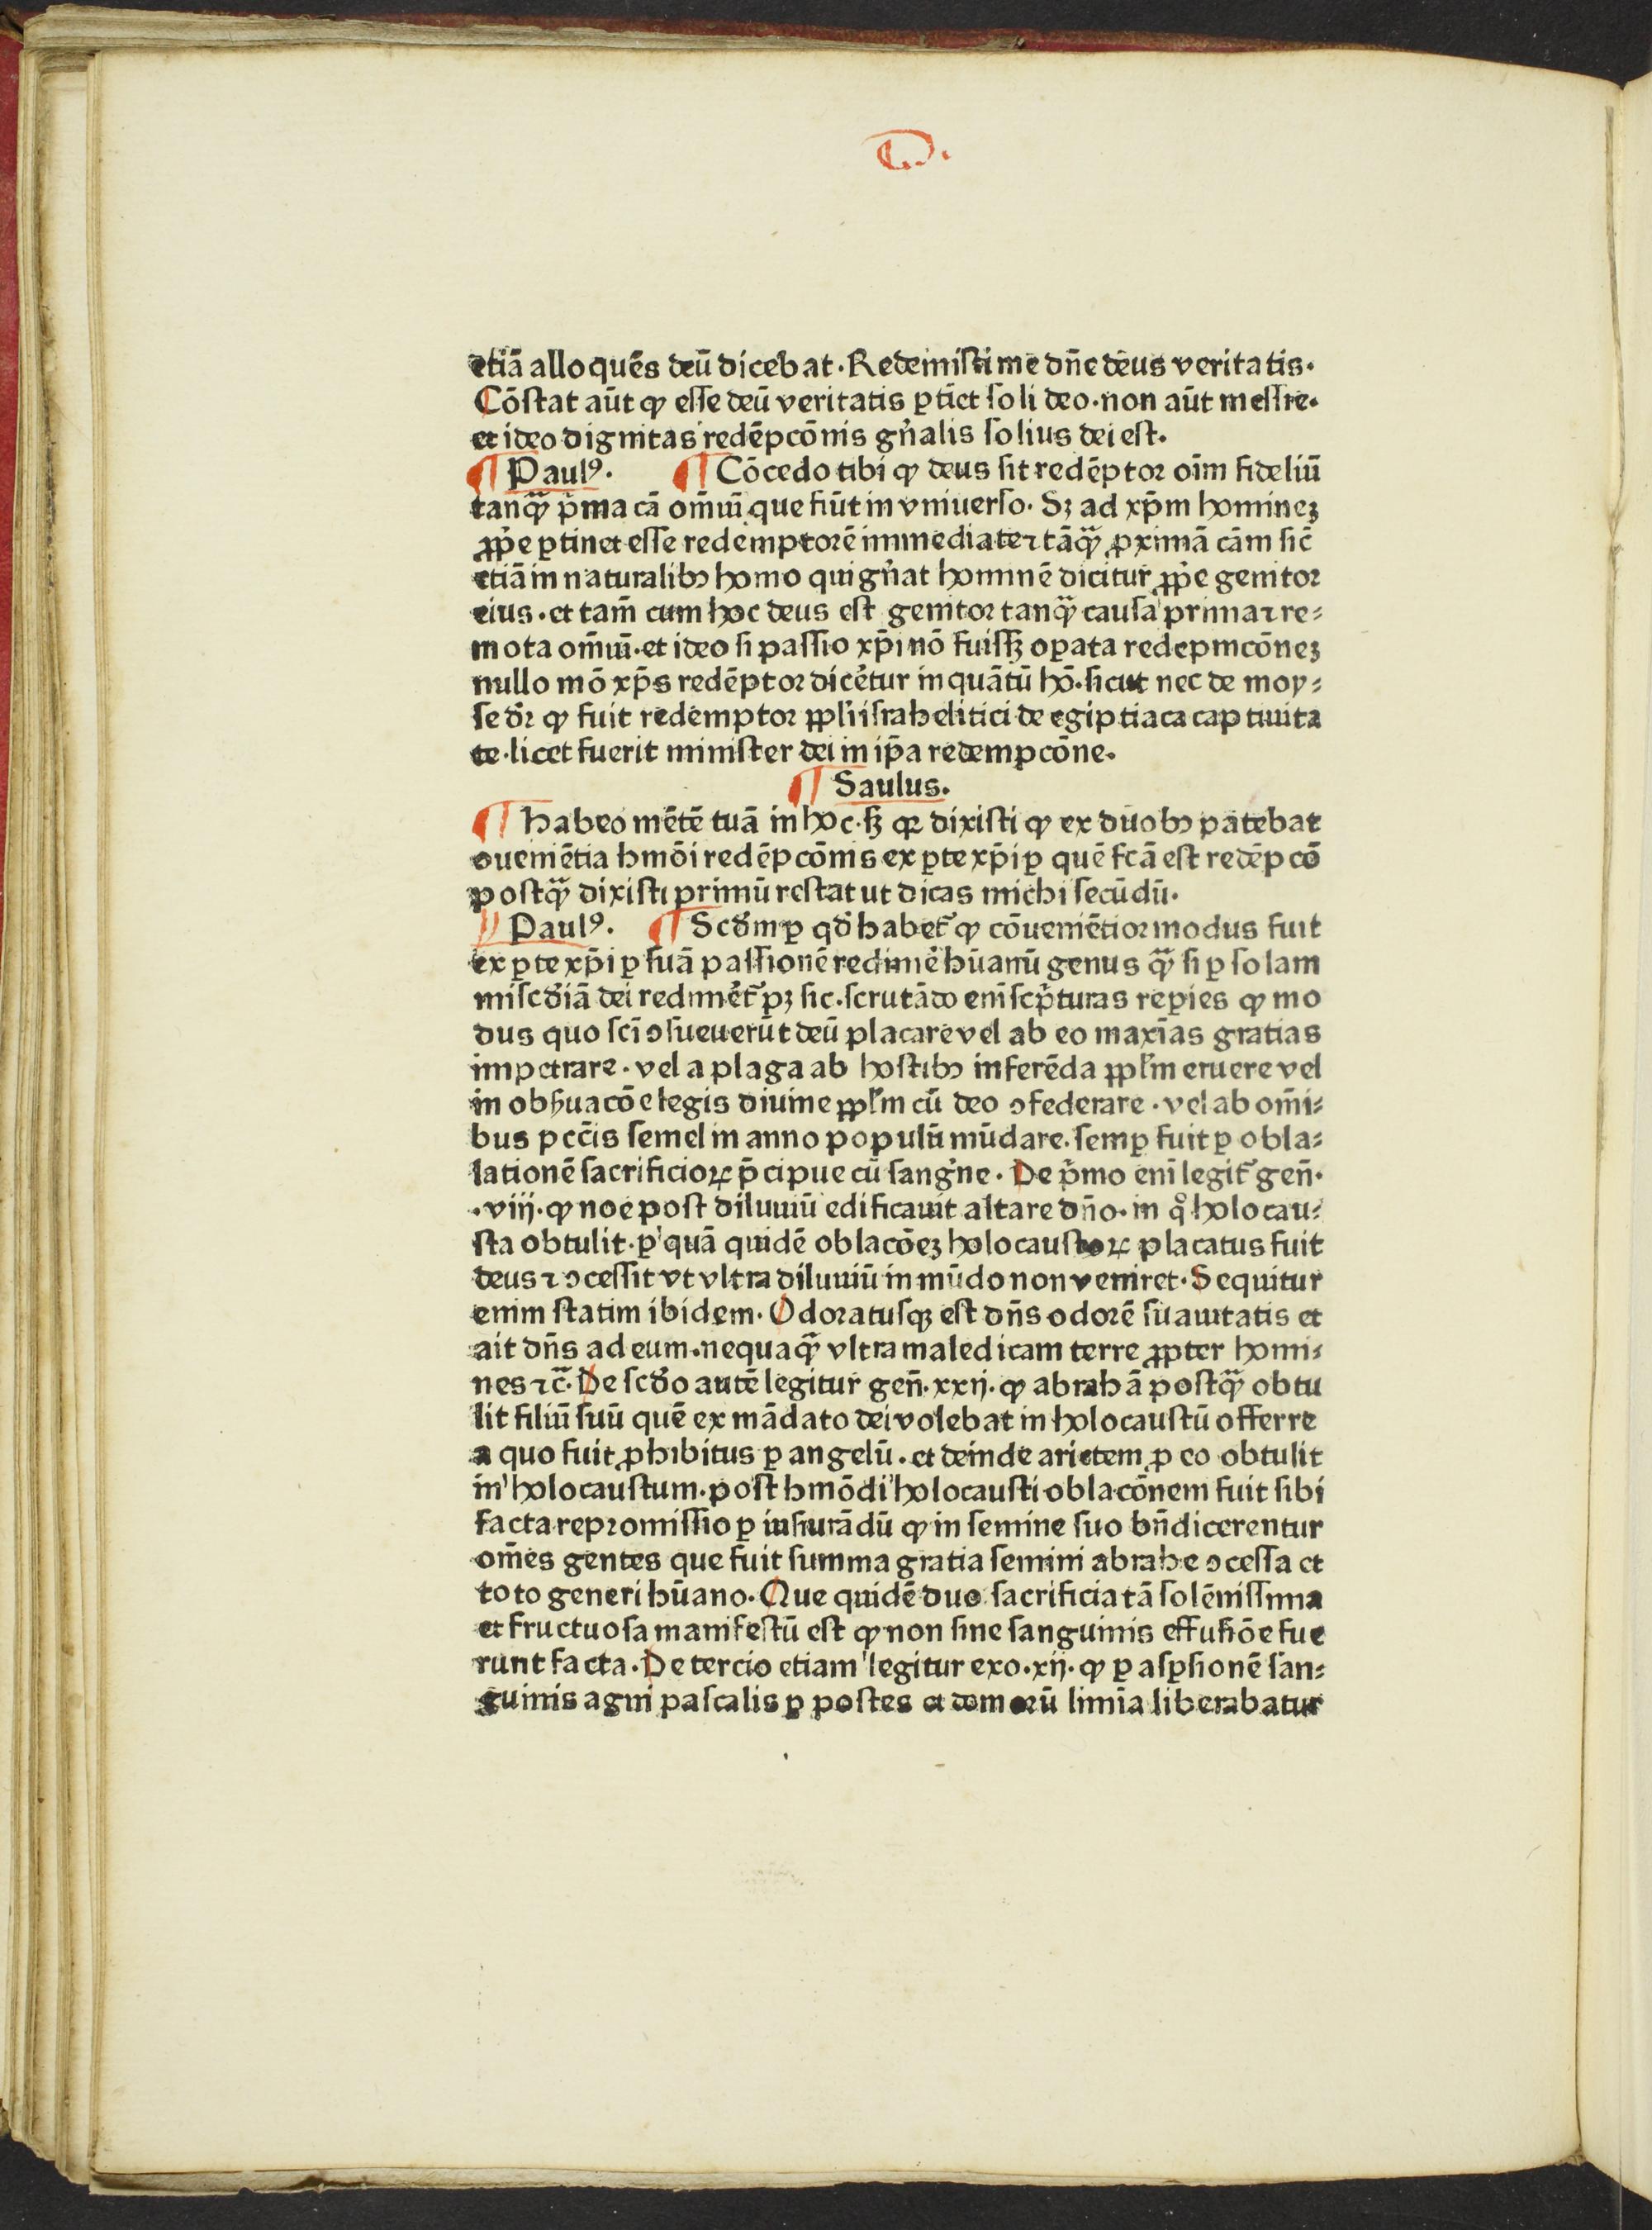 etiā alloquēs deū dicebat. Redemisti me dn̄e deus veritatis.
Cōstat aūt ꝙ esse deū veritatis ꝑtīet soli deo. non aūt messie.
et ideo dignitas redēpcōnis gn̄alis solius dei est.
¶ Paulꝰ. ¶ Cōcedo tibi ꝙ deus sit redēptor oīm fideliū
tanꝙ̄ pͥma cā om̄iū que fiūt in vniuerso. Sꝫ ad xp̄m hominēꝫ
ꝓpͥe ꝑtinet esse redemptorē immediate ⁊ tāꝙ̄ ꝓximā cām sic̄
etiā in naturalibꝫ homo qui gn̄at hominē dicitur ꝓpͥe genitor
eius. et tam̄ cum hoc deus est genitor tanꝙ̄ causa prima ⁊ re⸗
mota om̄iū. et ideo si passio xp̄i nō fuissꝫ oꝑata redepmcōneꝫ
nullo mō xp̄s redēptor dicētur inquātū hō. sicut nec de moy⸗
se dr̄ ꝙ fuit redemptor ppl̄i israhelitici de egiptiaca captiuita
te. licet fuerit minister dei in ip̄a redempcōne.
¶ Saulus.
¶ Habeo mētē tuā in hoc. sꝫ qꝛ dixisti ꝙ ex duobꝫ patebat
ꝯueniētia hmōi redēpcōnis ex ꝑte xp̄i ꝑ quē fcā est redēpcō
postꝙ̄ dixisti primū restat ut dicas michi secūdū.
¶ Paulꝰ. ¶ Scd̄m ꝑ qd̄ habet᷑ ꝙ cōueniētior modus fuit
ex ꝑte xp̄i ꝑ suā passionē redimē hūanū genus ꝙ̄ si ꝑ solam
miscd̄iā dei redimēt᷑ pꝫ sic. scrutādo enī scpͥturas reꝑies ꝙ mo
dus quo scī ꝯsueuerūt deū placare vel ab eo maxīas gratias
impetrare. vel a plaga ab hostibꝫ inferēda ppl̄m eruere vel
in obẜuacōe legis diuine ppl̄m cū deo ꝯfederare. vel ab om̄i⸗
bus pcc̄is semel in anno populū mūdare. semꝑ fuit ꝑ obla⸗
lationē sacrificioꝝ p̄cipue cū sangͥne. De pͥmo enī legit᷑ gen̄.
.viij. ꝙ noe post diluuiū edificauit altare dn̄o. in qͦ holocau⸗
sta obtulit. ꝑ quā quidē oblacōeꝫ holocaustoꝝ placatus fuit
deus ⁊ ꝯcessit vt vltra diluuiū in mūdo non veniret. Sequitur
enim statim ibidem. Odoratusqꝫ est dn̄s odorē suauitatis et
ait dn̄s ad eum. nequaꝙ̄ vltra maledicam terre ꝓpter homi⸗
nes ⁊c̄. De scd̄o autē legitur gen̄. xxij. ꝙ abrahā postꝙ̄ obtu
lit filiū suū quē ex mādato dei volebat in holocaustū offerre
a quo fuit ꝓhibitus ꝑ angelū. et deinde arietem ꝓ eo obtulit
in holocaustum. post hmōdi holocausti oblacōnem fuit sibi
facta repromissio ꝑ iusiurādū ꝙ in semine suo bn̄dicerentur
om̄es gentes que fuit summa gratia semini abrahe ꝯcessa et
toto generi hūano. Que quidē duo sacrificia tā solēnissima
et fructuosa manifestū est ꝙ non sine sanguinis effusiōe fue
runt facta. De tercio etiam legitur exo. xij. ꝙ ꝑ asꝑsionē san⸗
guinis agni pascalis ꝑ postes et domorū limīa liberabatur